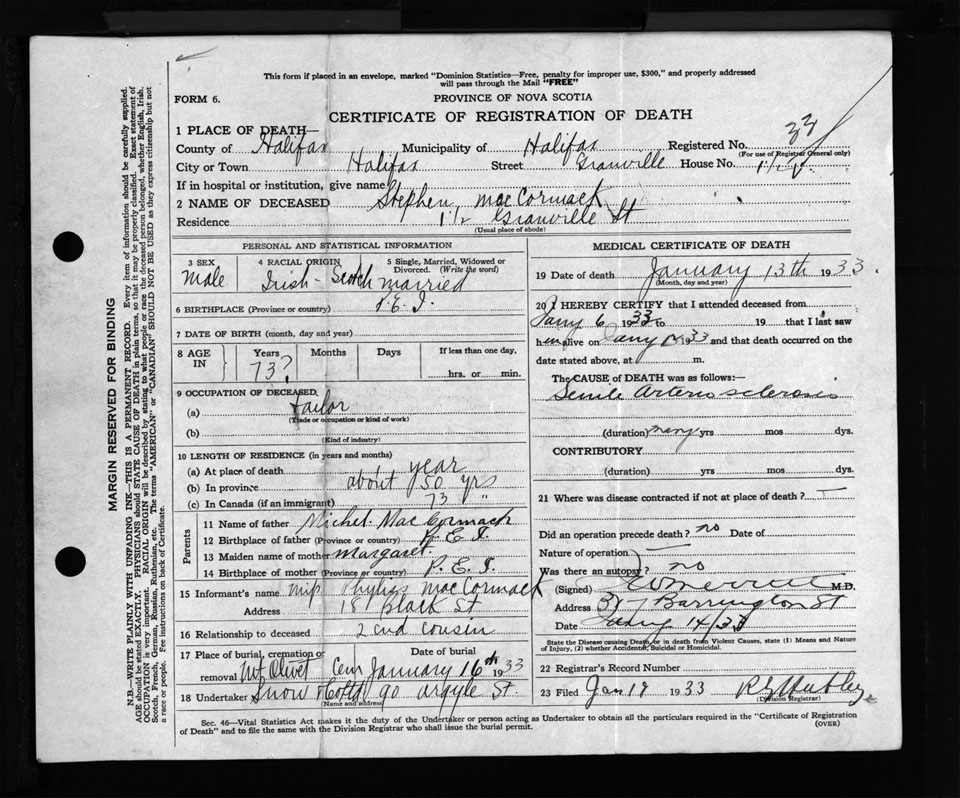 This form if placed in an envelope, marked "Dominion Statistics—Free, penalty for improper use, $300," and properly addressed
will pass through the Mail "FREE"
FORM 6.
PROVINCE OF NOVA SCOTIA
CERTIFICATE OF REGISTRATION OF DEATH
MARGIN RESERVED FOR BINDING
N.B.—WRITE PLAINLY WITH UNFADING INK—THIS IS A PERMANENT RECORD. Every item of information should be carefully supplied.
AGE should be stated EXACTLY. PHYSICIANS should STATE CAUSE OF DEATH in plain terms, so that it may be properly classified. Exact statement of
OCCUPATION is very important. RACIAL ORIGIN will be described by stating to what people or race the deceased person belonged, whether English, Irish,
Scotch, French, German, Russian, Ruthenian, etc. The terms "AMERICAN" or "CANADIAN" SHOULD NOT BE USED as they express citizenship but not
a race or people. Fee instructions on back of Certificate.
1 PLACE OF DEATH—
County of Halifax Municipality of Halifax Registered No. 33
(For use of Registrar General only)
City or Town Halifax Street Granville House No. 1½
If in hospital or institution, give name
2 NAME OF DECEASED Stephen MacCormack
Residence 1½ Granville St
(Usual place of abode)
PERSONAL AND STATISTICAL INFORMATION
3 SEX Male
4 RACIAL ORIGIN Irish-Scotch
5 Single, Married, Widowed or Divorced. (Write the word) married
6 BIRTHPLACE (Province or country) P.E.I.
7 DATE OF BIRTH (month, day and year)
8 AGE IN Years Months Days If less than one day,
73? hrs. or min.
9 OCCUPATION OF DECEASED
(a) Tailor
(Trade or occupation or kind of work)
(b)
(Kind of industry)
10 LENGTH OF RESIDENCE (in years and months)
(a) At place of death year
(b) In province about 50 yrs
(c) In Canada (if an immigrant) 73 "
Parents
11 Name of father Michel MacCormack
12 Birthplace of father (Province or country) P.E.I.
13 Maiden name of mother Margaret
14 Birthplace of mother (Province or country) P.E.I.
15 Informant's name Miss Phyliss MacCormack
Address 18 Black St
16 Relationship to deceased 2cnd cousin
17 Place of burial, cremation or removal Date of burial
Mt Olivet Cem January 16th 1933
18 Undertaker Snow & Co Ltd 90 Argyle St
Name and address
MEDICAL CERTIFICATE OF DEATH
19 Date of death January 13th 1933
(Month, day and year)
20 I HEREBY CERTIFY that I attended deceased from
Jany 6 1933 to 19 that I last saw
him alive on Jany 1933 and that death occurred on the
date stated above, at m.
The CAUSE of DEATH was as follows:
Senile Arteriosclerosis
(duration) many yrs mos dys.
CONTRIBUTORY
(duration) yrs mos dys.
21 Where was disease contracted if not at place of death? —
Did an operation precede death? no Date of
Nature of operation —
Was there an autopsy? no
(Signed) M.D.
Address Barrington St
Date 14/33
State the Disease causing Death, or in death from Violent Causes, state (1) Means and Nature
of Injury, (2) whether Accidental, Suicidal or Homicidal.
22 Registrar's Record Number
23 Filed Jan 1933
(Division Registrar)
Sec. 46—Vital Statistics Act makes it the duty of the Undertaker or person acting as Undertaker to obtain all the particulars required in the "Certificate of Registration
of Death" and to file the same with the Division Registrar who shall issue the burial permit.
(OVER)